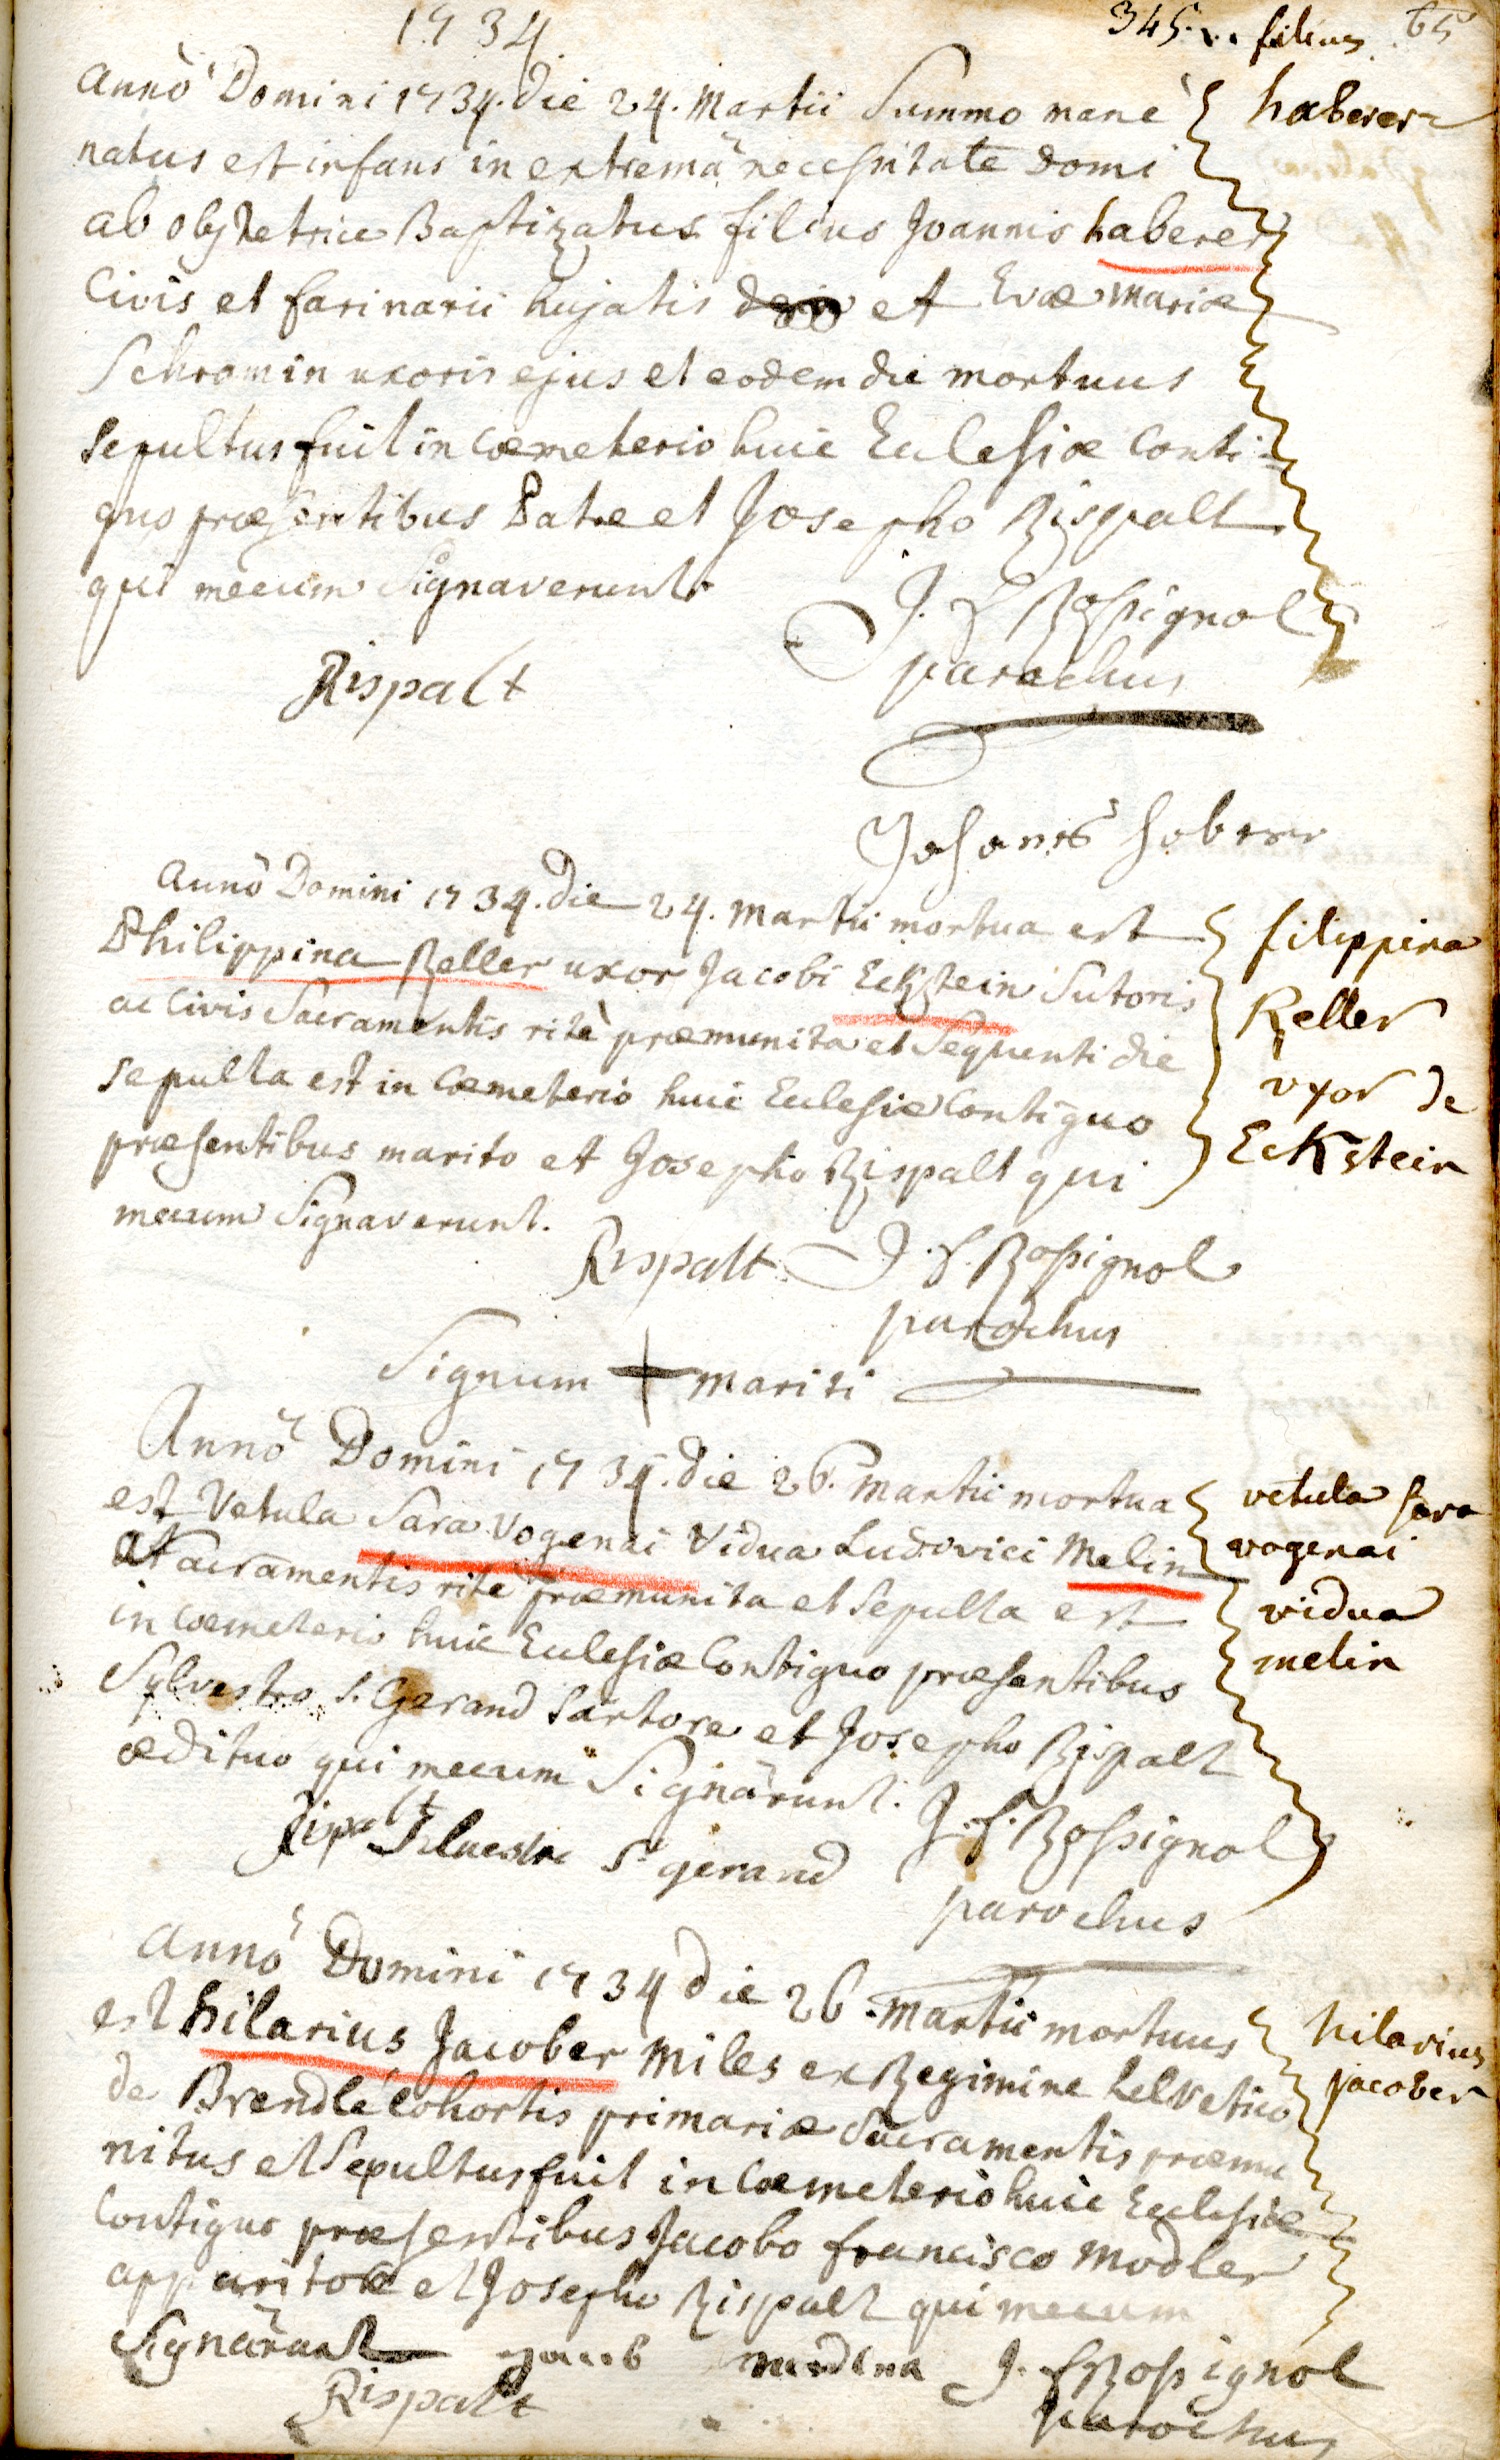 1734.
345. v. filius 65
Annò Domini 1734. die 24. Martii Summo mane
haberer
natus est infans in extremâ necessitate domi
ab obstetrice Baptizatus filius Joannis haberer
Civis et farinarii hujatis et Evæ Mariæ
Schromin uxoris ejus et eodem die mortuus
sepultus fuit in Cœmeterio huic Ecclesiæ Conti-
guo præsentibus Patre et Josepho Rispalt
qui mecum Signaverunt.
J. F. Rossignol
Rispalt
parochus
Johanes haberer
Annò Domini 1734. die 24. Martii mortua est
filippina
Philippina Keller uxor Jacobi Eckstein Sutoris
Keller
ac Civis Sacramentis ritè præmunita et Sequenti die
vxor de
sepulta est in Cœmeterio huic Ecclesiæ Contiguo
Eckstein
præsentibus marito et Josepho Rispalt qui
mecum Signaverunt.
Rispalt J. F. Rossignol
parochus
Signum + mariti
Annò Domini 1734. die 26. Martii mortua
vetula sara
est Vetula Sara Vogenai Vidua Ludovici Melin
vogenai
et Sacramentis ritè præmunita et Sepulta est
vidua
in Cœmeterio huic Ecclesiæ Contiguo præsentibus
melin
Sylvestro S. Gerand Sartore et Josepho Rispalt
ædituo qui mecum Signârunt.
J. F. Rossignol
Rispalt Siluestre St gerand
parochus
Annò Domini 1734 die 26. Martii mortuus
hilarius
est hilarius Jacober Miles ex Regimine helvetico
jacober
de Brendlé Cohortis primariæ Sacramentis præmu
nitus et Sepultus fuit in Cœmeterio huic Ecclesiæ
Contiguo præsentibus Jacobo francisco Modler
apparitore et Josepho Rispalt qui mecum
Signârunt Jacob J. F. Rossignol
Rispalt
parochus